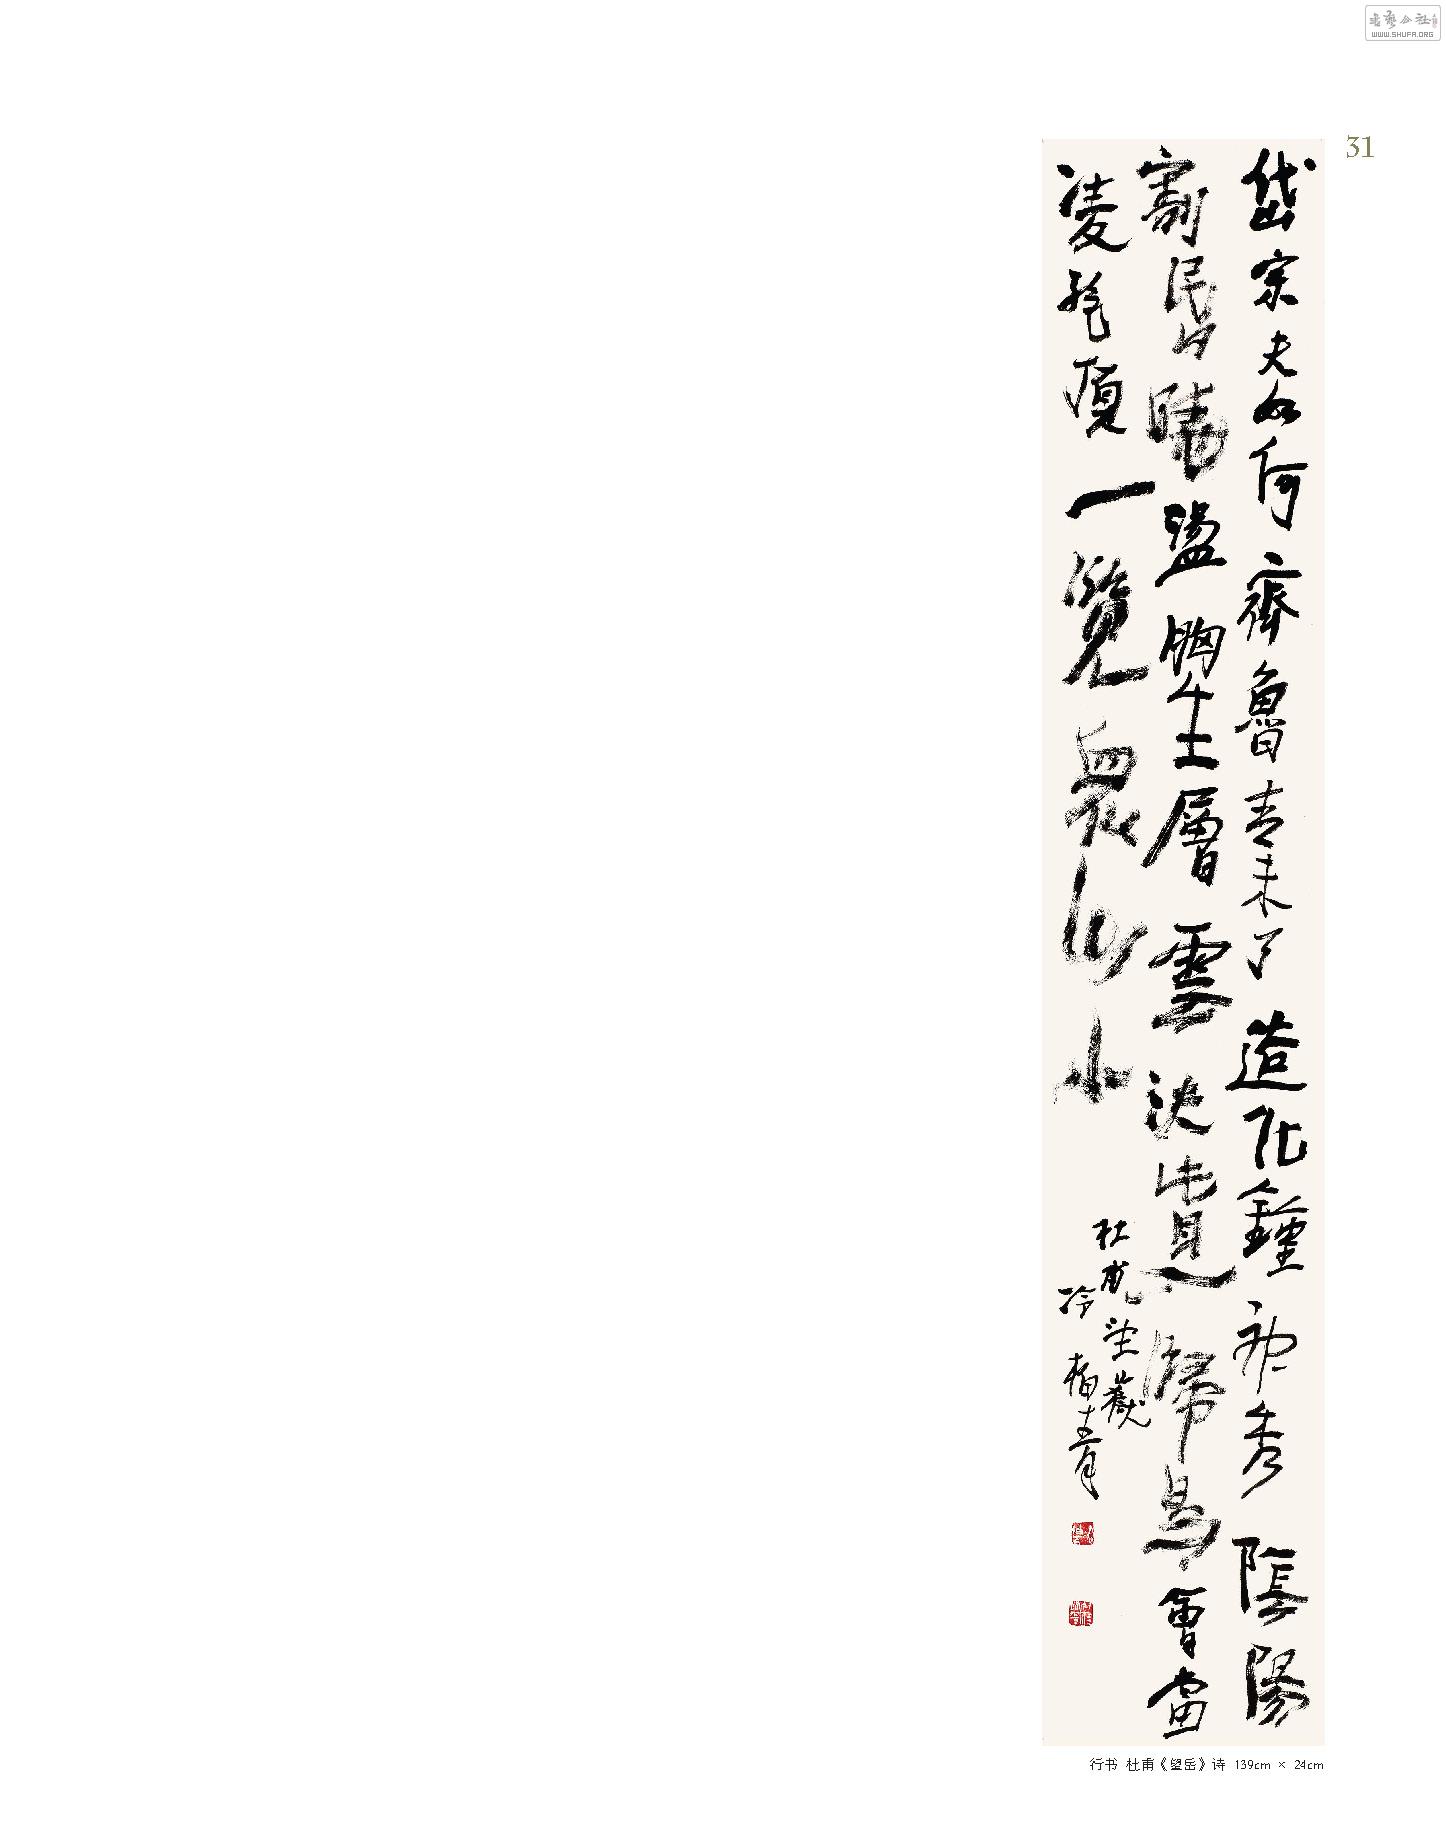 书艺公社
WWW.SHUFA.ORG
31
岱宗夫如何齊魯青未了造化鍾神秀陰陽
割昬曉盪胸生層雲決眥入歸鳥會當
凌絶頂一覽眾山小
杜甫望嶽
冷柏青
行书 杜甫《望岳》诗 139cm × 24cm